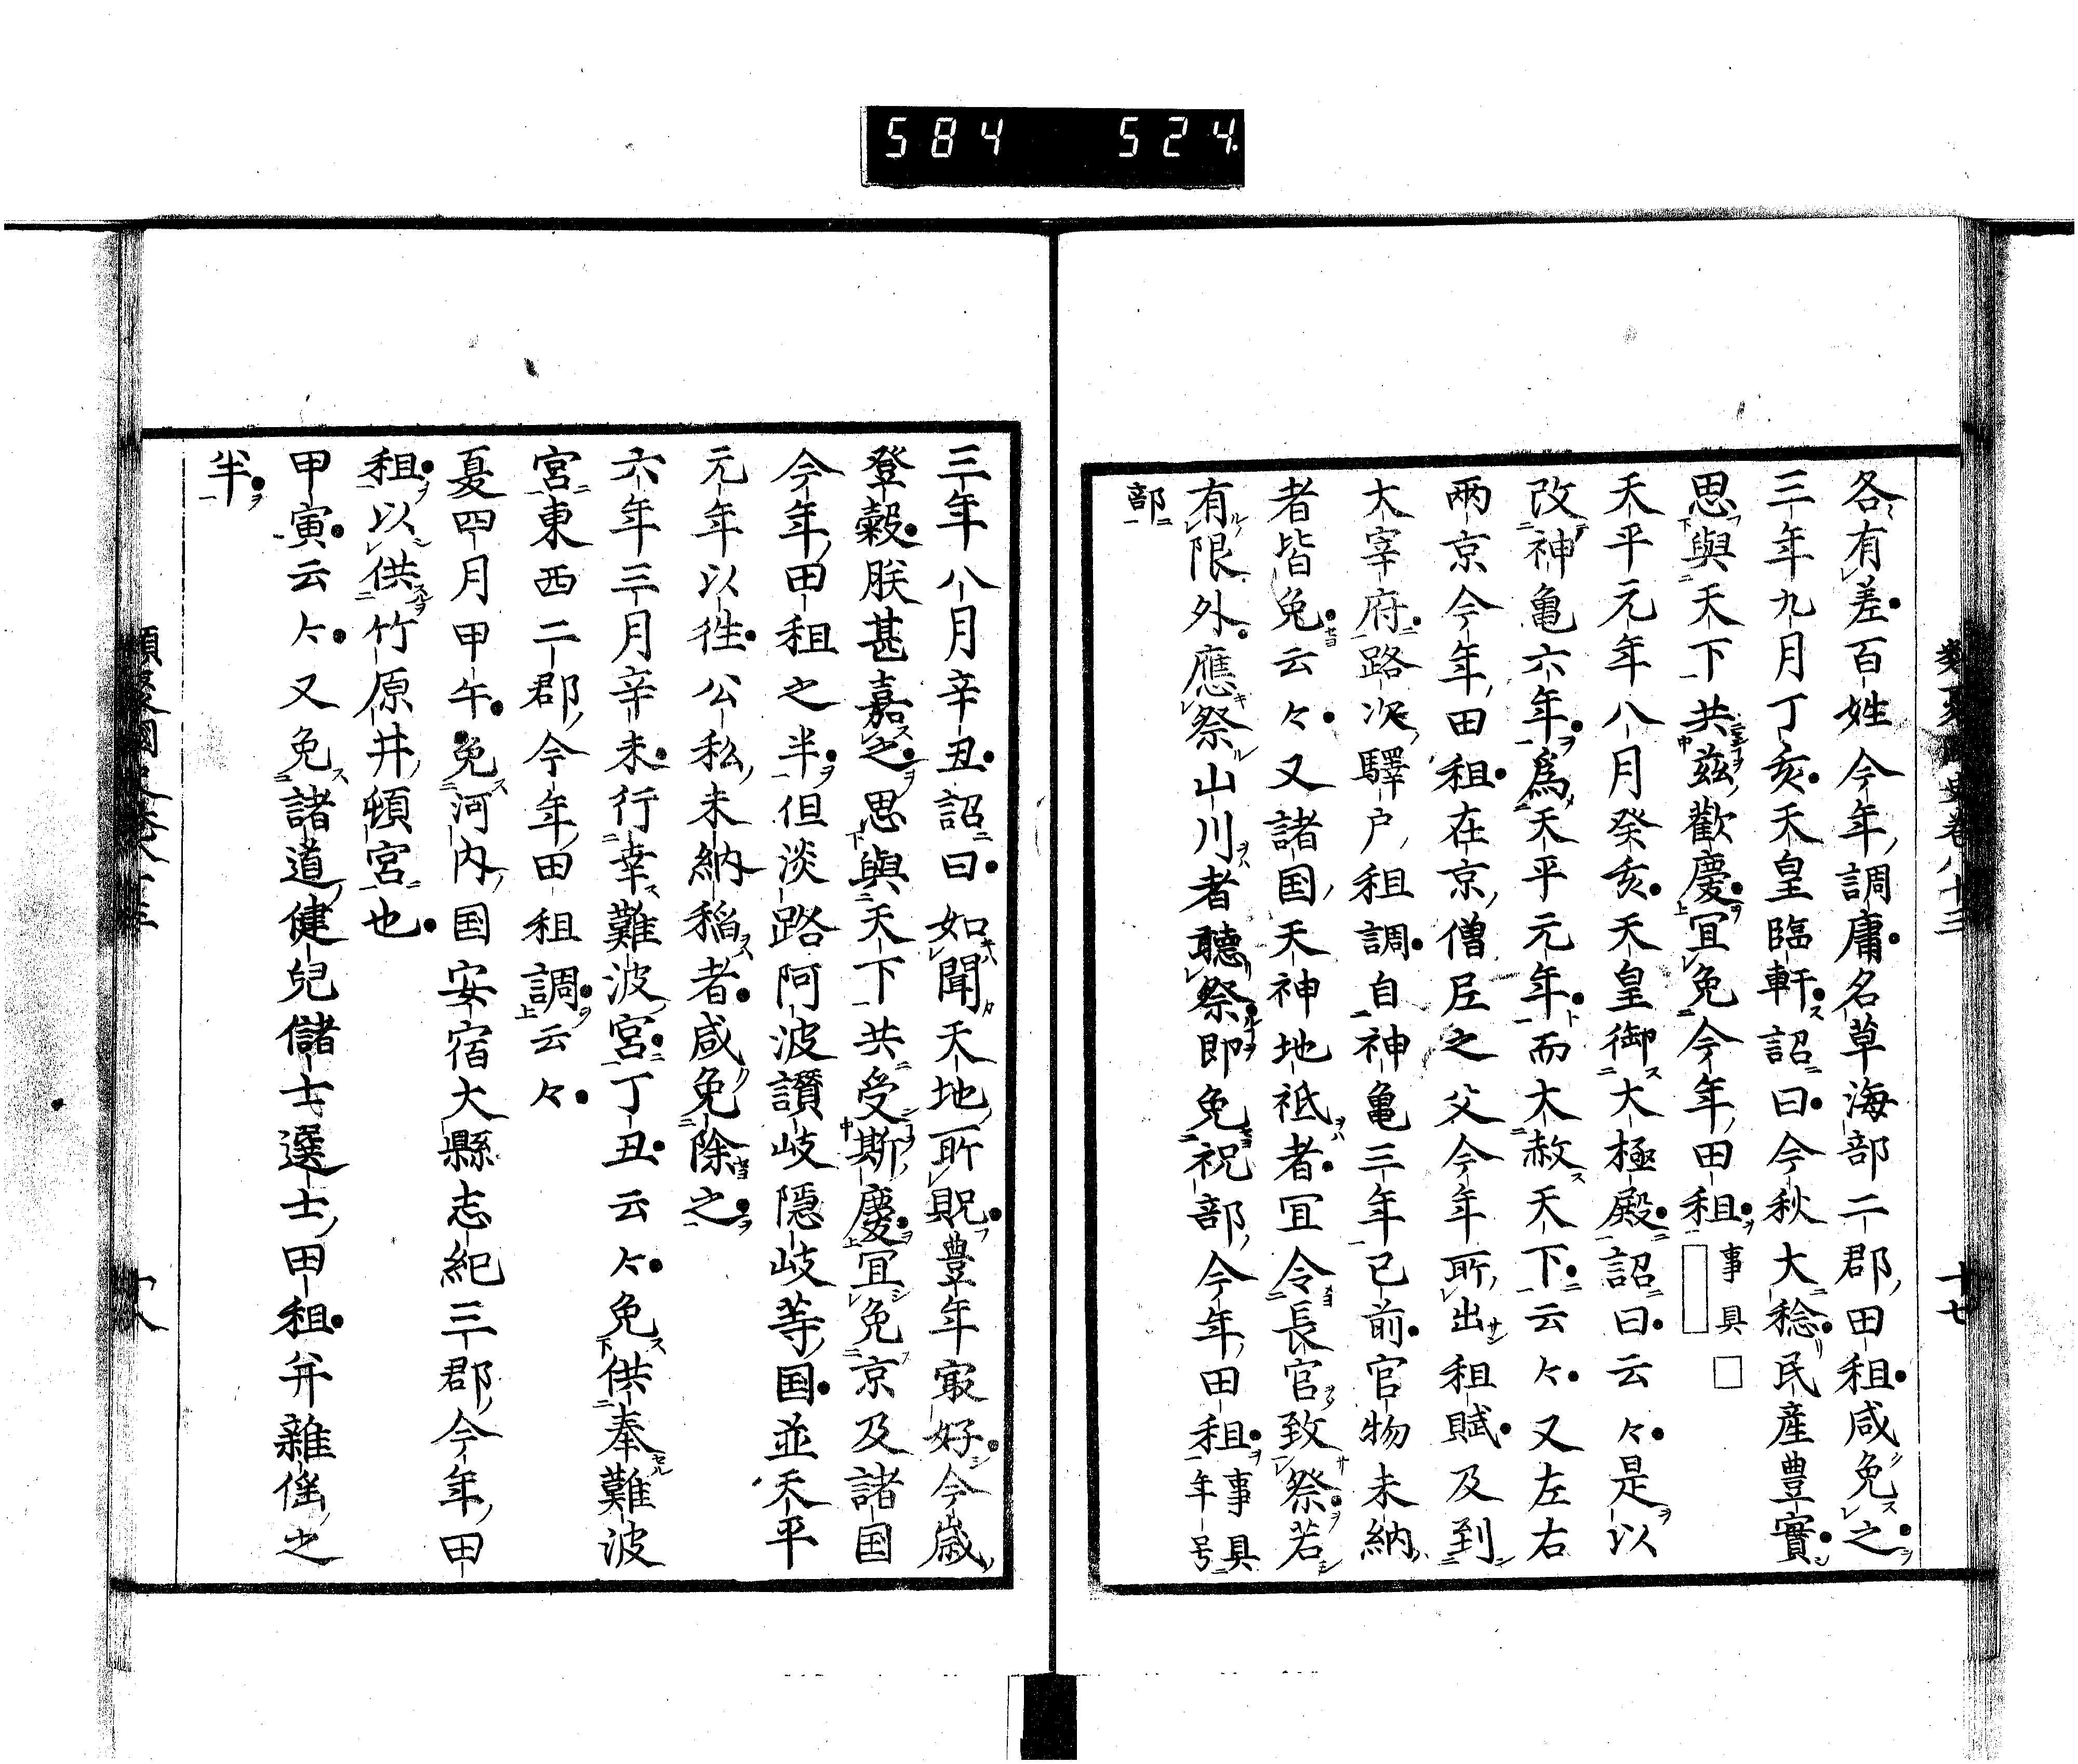 584 524
各有差百姓今年調庸名草海部二郡田租咸免之
三年九月丁亥天皇臨軒詔曰今秋大稔民産豊實
思與天下共茲歡慶宜免今年田租事具□
天平元年八月癸亥天皇御大極殿詔曰云々是以
改神亀六年為天平元年而大赦天下云々又左右
兩京今年田租在京僧尼之父今年所出租賦及到
大宰府路次驛戸租調自神亀三年已前官物未納
者皆免云々又諸国天神地祗者宜令長官致祭若
有限外應祭山川者聽祭即免祝部今年田租事具年号
部
三年八月辛丑詔曰如聞天地所貺豊年㝡好今歳
登穀朕甚嘉之思與天下共受斯慶宜免京及諸国
今年田租之半但淡路阿波讃岐隠岐等国並天平
元年以徃公私未納稲者咸免除之
六年三月辛未行幸難波宮丁丑云々免供奉難波
宮東西二郡今年田租調云々
夏四月甲午免河内国安宿大縣志紀三郡今年田
租以供竹原井頓宮也
甲寅云々又免諸道健兒儲士選士田租并雜徭之
半